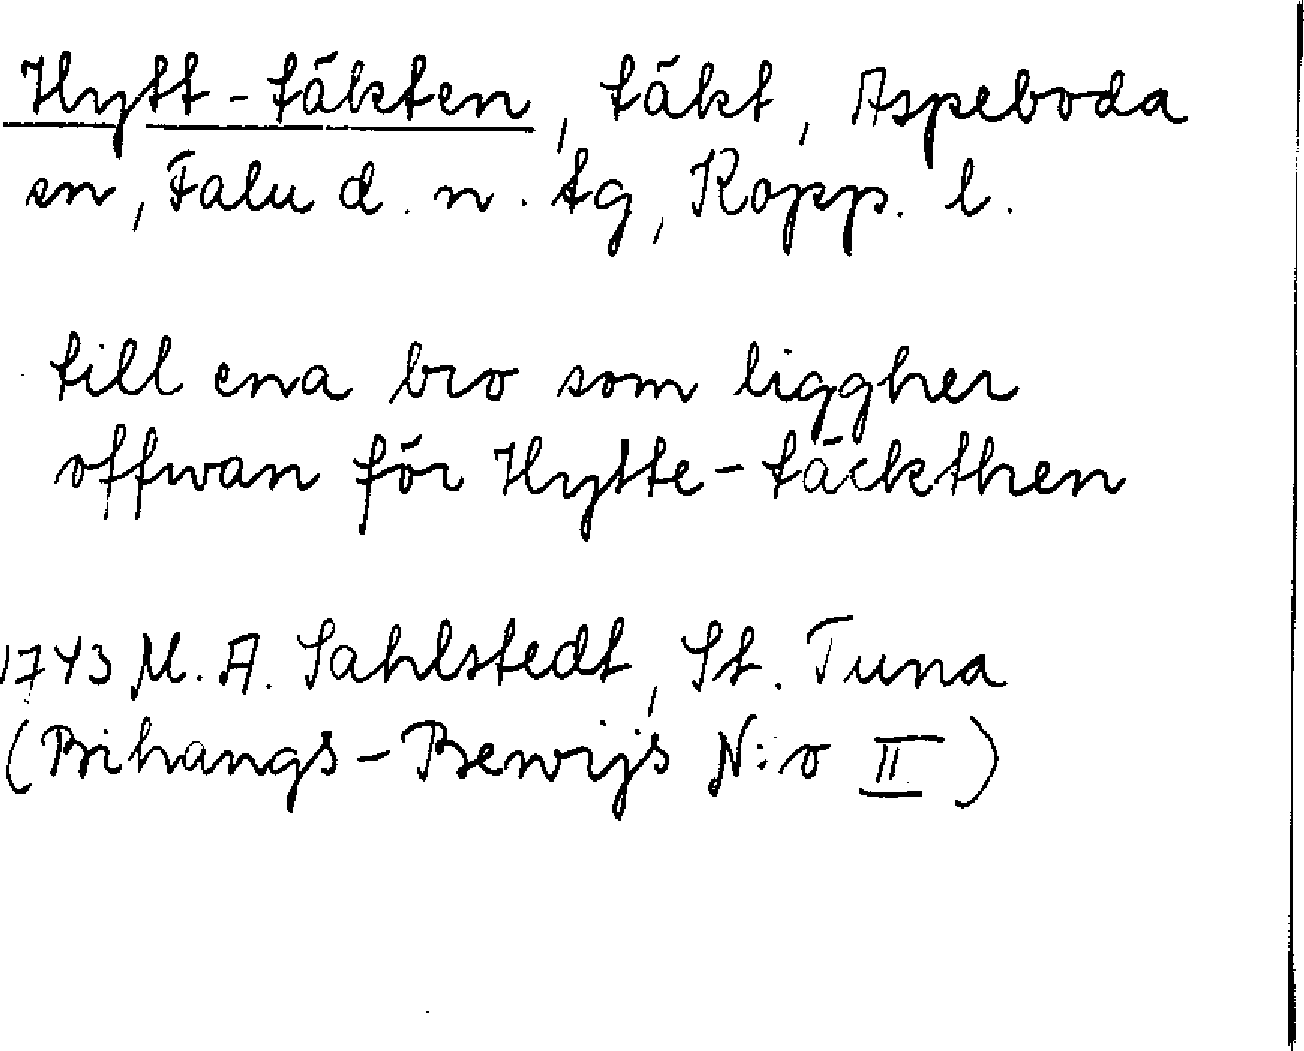 Hytt-täkten, täkt, Aspeboda
sn, Falu d. n. tg, Kopp. l.
till ena bro som liggher
offwan för Hytte-täckthen
1743 M. A. Sahlstedt, St. Tuna
(Bihangs-Bewijs N:o II)